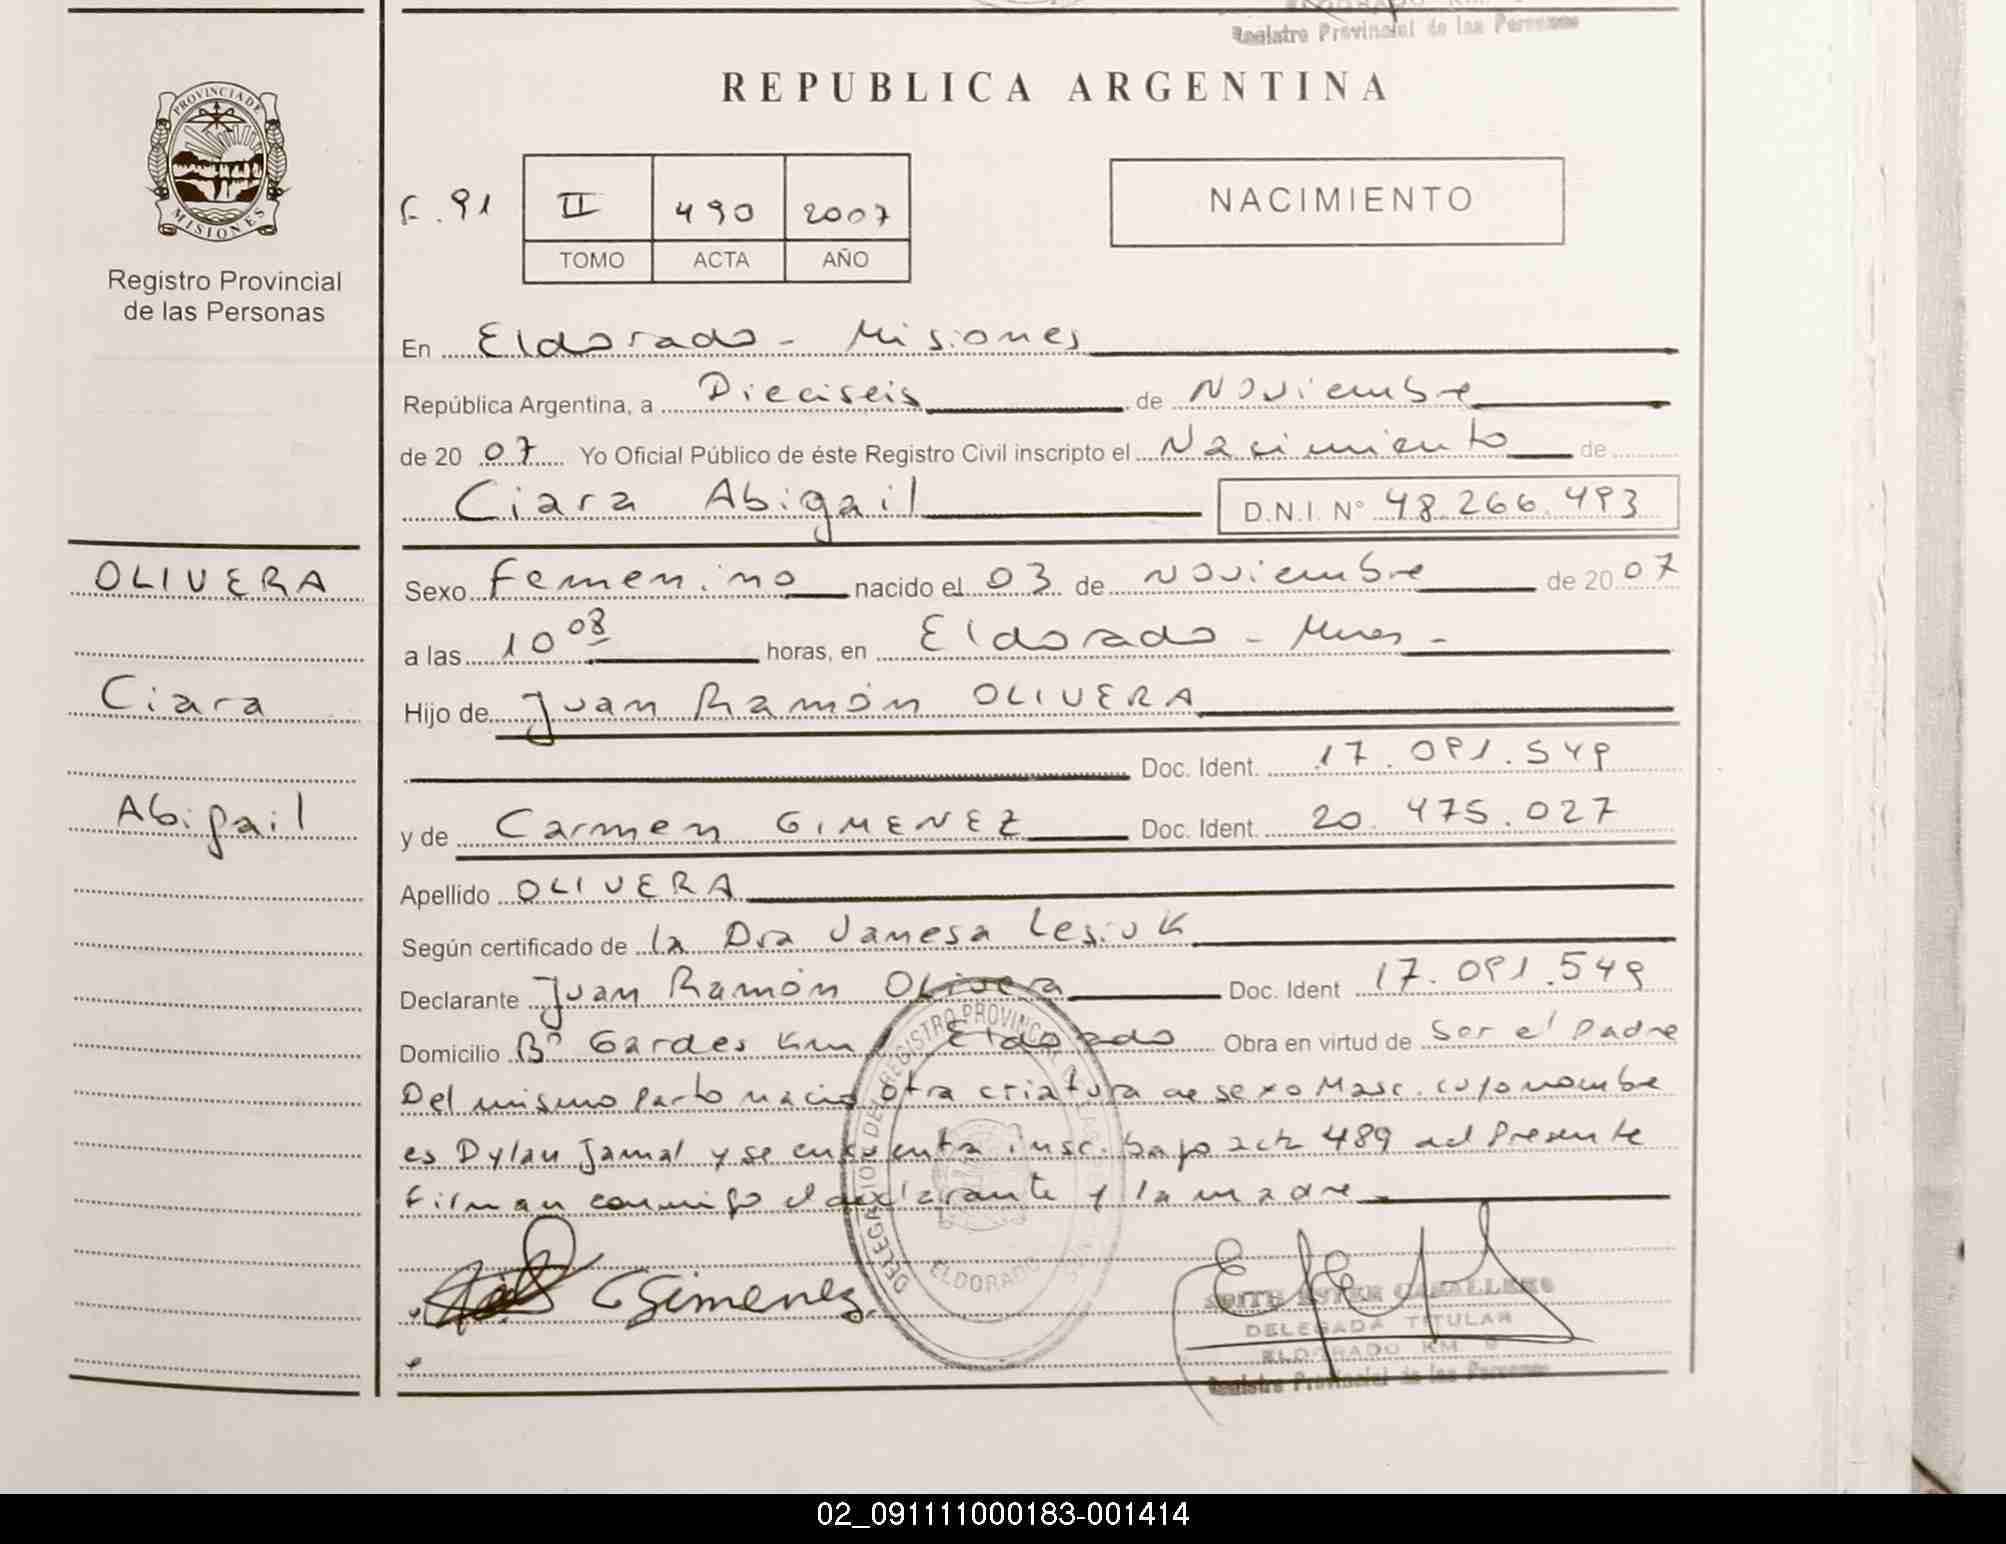 Registro Provincial de las Personas
REPUBLICA ARGENTINA
PROVINCIA DE
MISIONES
Registro Provincial
de las Personas
F. 91
II 490 2007
TOMO ACTA AÑO
NACIMIENTO
En Eldorado - Misiones
República Argentina, a Dieciseis de Noviembre
de 20 07 Yo Oficial Público de éste Registro Civil inscripto el Nacimiento de
Ciara Abigail D.N.I. N° 48.266.493
OLIVERA
Ciara
Abigail
Sexo Femenino nacido el 03 de Noviembre de 20 07
a las 10 08 horas, en Eldorado - Mnes -
Hijo de Juan Ramón OLIVERA
Doc. Ident. 17.091.549
y de Carmen GIMENEZ Doc. Ident. 20.475.027
Apellido OLIVERA
Según certificado de la Dra Vanesa Lesiuk
Declarante Juan Ramón Olivera Doc. Ident 17.091.549
Domicilio B° Gardes Km Eldorado Obra en virtud de ser el padre
Del mismo parto nacio otra criatura de sexo Masc. cuyo nombre
es Dylan Jamal y se encuentra insc. bajo acta 489 del presente
Firman conmigo el declarante y la madre
DELEGACION DEL REGISTRO PROVINCIAL
ELDORADO
Gimenez
ESTER CABALLERO
DELEGADA TITULAR
ELDORADO KM. 9
Registro Provincial de las Personas
02_091111000183-001414